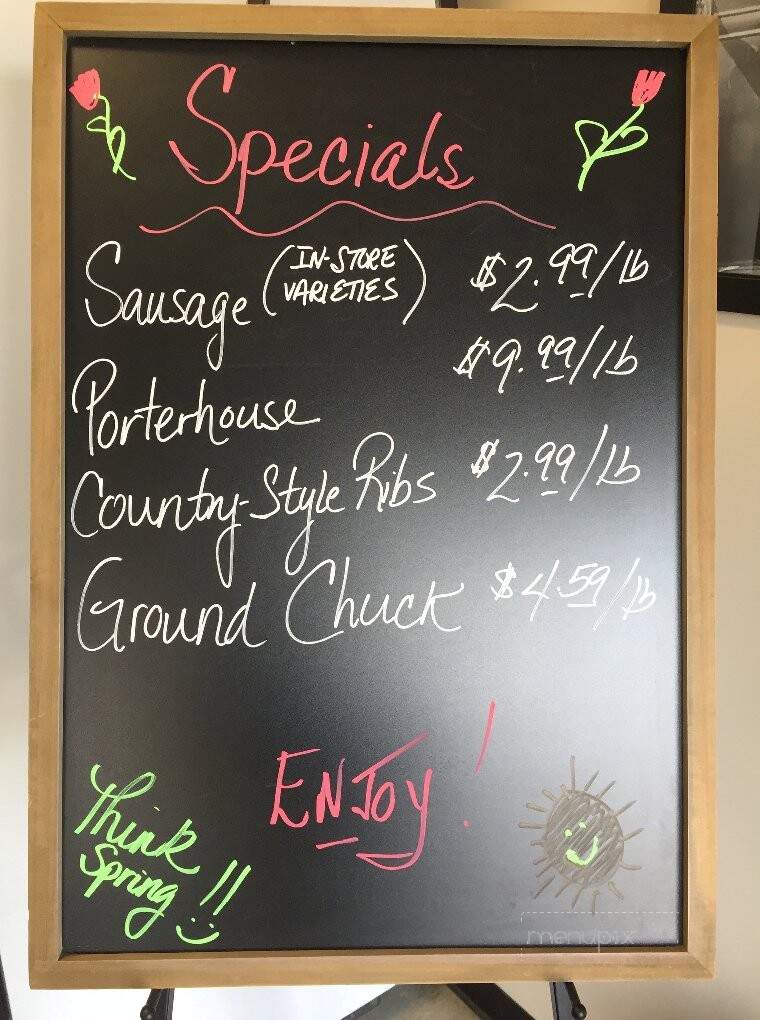 Specials
Sausage (IN-STORE VARIETIES) $2.99/lb
Porterhouse $9.99/lb
Country-Style Ribs $2.99/lb
Ground Chuck $4.59/lb
ENJOY!
Think
Spring!!
menupix